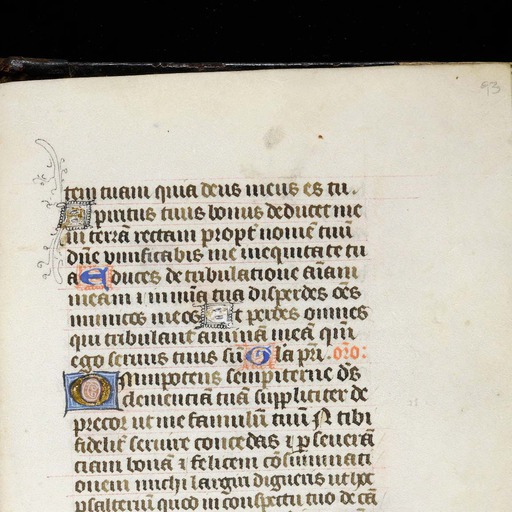 93
tem tuam quia deus meus es tu.
Spiritus tuus bonus deducet me
in terrā rectam propt nomē tuū
dn̄e vivificabis me inequitate tu
a Educes de tribulatione aīam
meam ⁊ in mīa tua disperdes oēs
inimicos meos Et perdes omnes
qui tribulant animā meā qm̄
ego servus tuus sū Gl̄a pr̄i. oro:
Omnipotens sempiterne d̄s
clementiā tuā suppliter de
precor ut me famulū tuū N tibi
fidelit̄ servire concedas ⁊ p severā
ciam bonā ⁊ felicem cōsummati
onem michi largiri digneris ut hoc
psalterium quod in conspectu tuo de cā